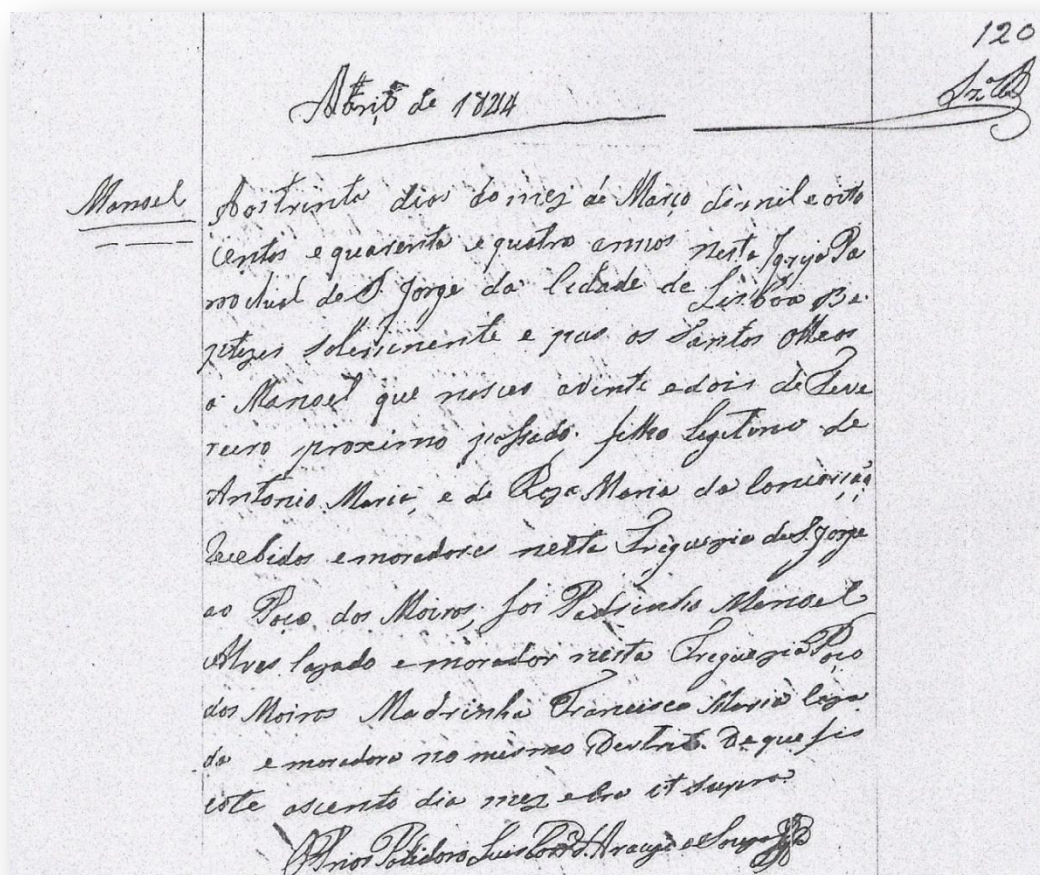 120
Abril de 1844
Manoel
Aos trinta dias do mez de Março de mil e oito
centos e quarenta e quatro annos nesta Igreja Pa
rochial de S. Jorge da Cidade de Lisboa Ba
ptizei solemnemente e puz os Santos Oleos
a Manoel que nasceo a vinte e dois de Feve
reiro proximo passado, filho legitimo de
Antonio Maria, e de Roza Maria da Conceição,
Recebidos e moradores nesta Freguezia de S. Jorge
ao Poço dos Moiros, foi Padrinho Manoel
Alves Cazado e morador nesta Freguezia Poço
dos Moiros Madrinha Francisca Maria Caza
da e moradora no mesmo De que fis
este ascento dia mez e Era ut supra
O Prior Polidoro Luis Araujo e Souza